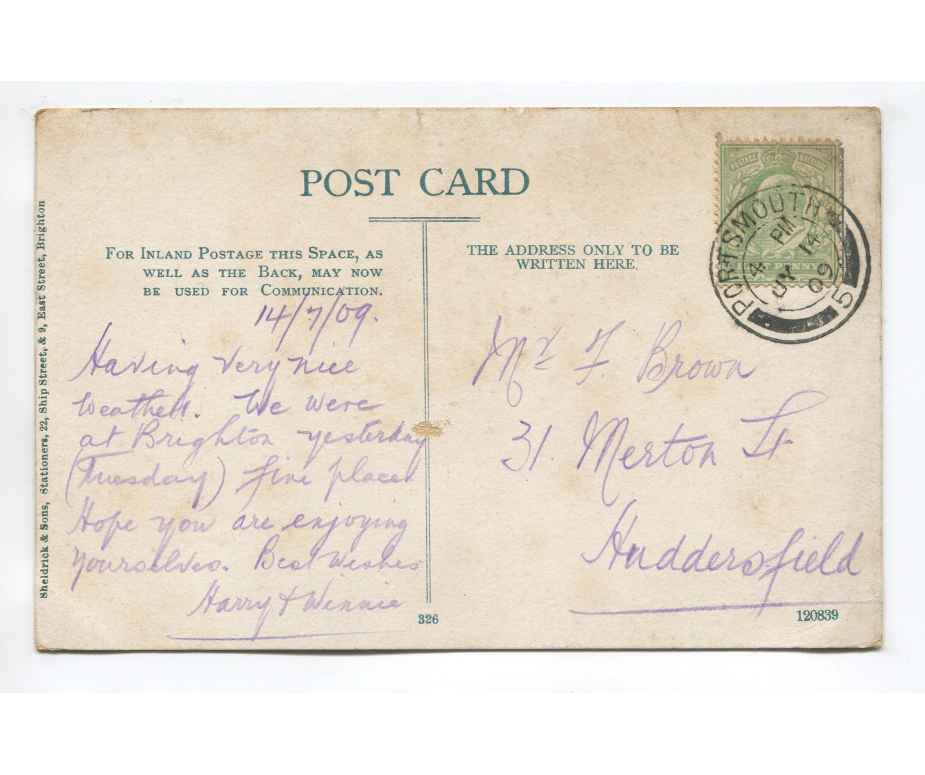 POST CARD
FOR INLAND POSTAGE THIS SPACE, AS
WELL AS THE BACK, MAY NOW
BE USED FOR COMMUNICATION.
14/7/09.
Having very nice
weather. We were
at Brighton yesterday
(Tuesday) fine place
Hope you are enjoying
yourselves. Best Wishes
Harry & Winnie
THE ADDRESS ONLY TO BE
WRITTEN HERE.
Mr F. Brown
31. Merton St
Huddersfield
PORTSMOUTH
4 PM
JY 14
09
5
326
120839
Sheldrick & Sons, Stationers, 22, Ship Street, & 9, East Street, Brighton